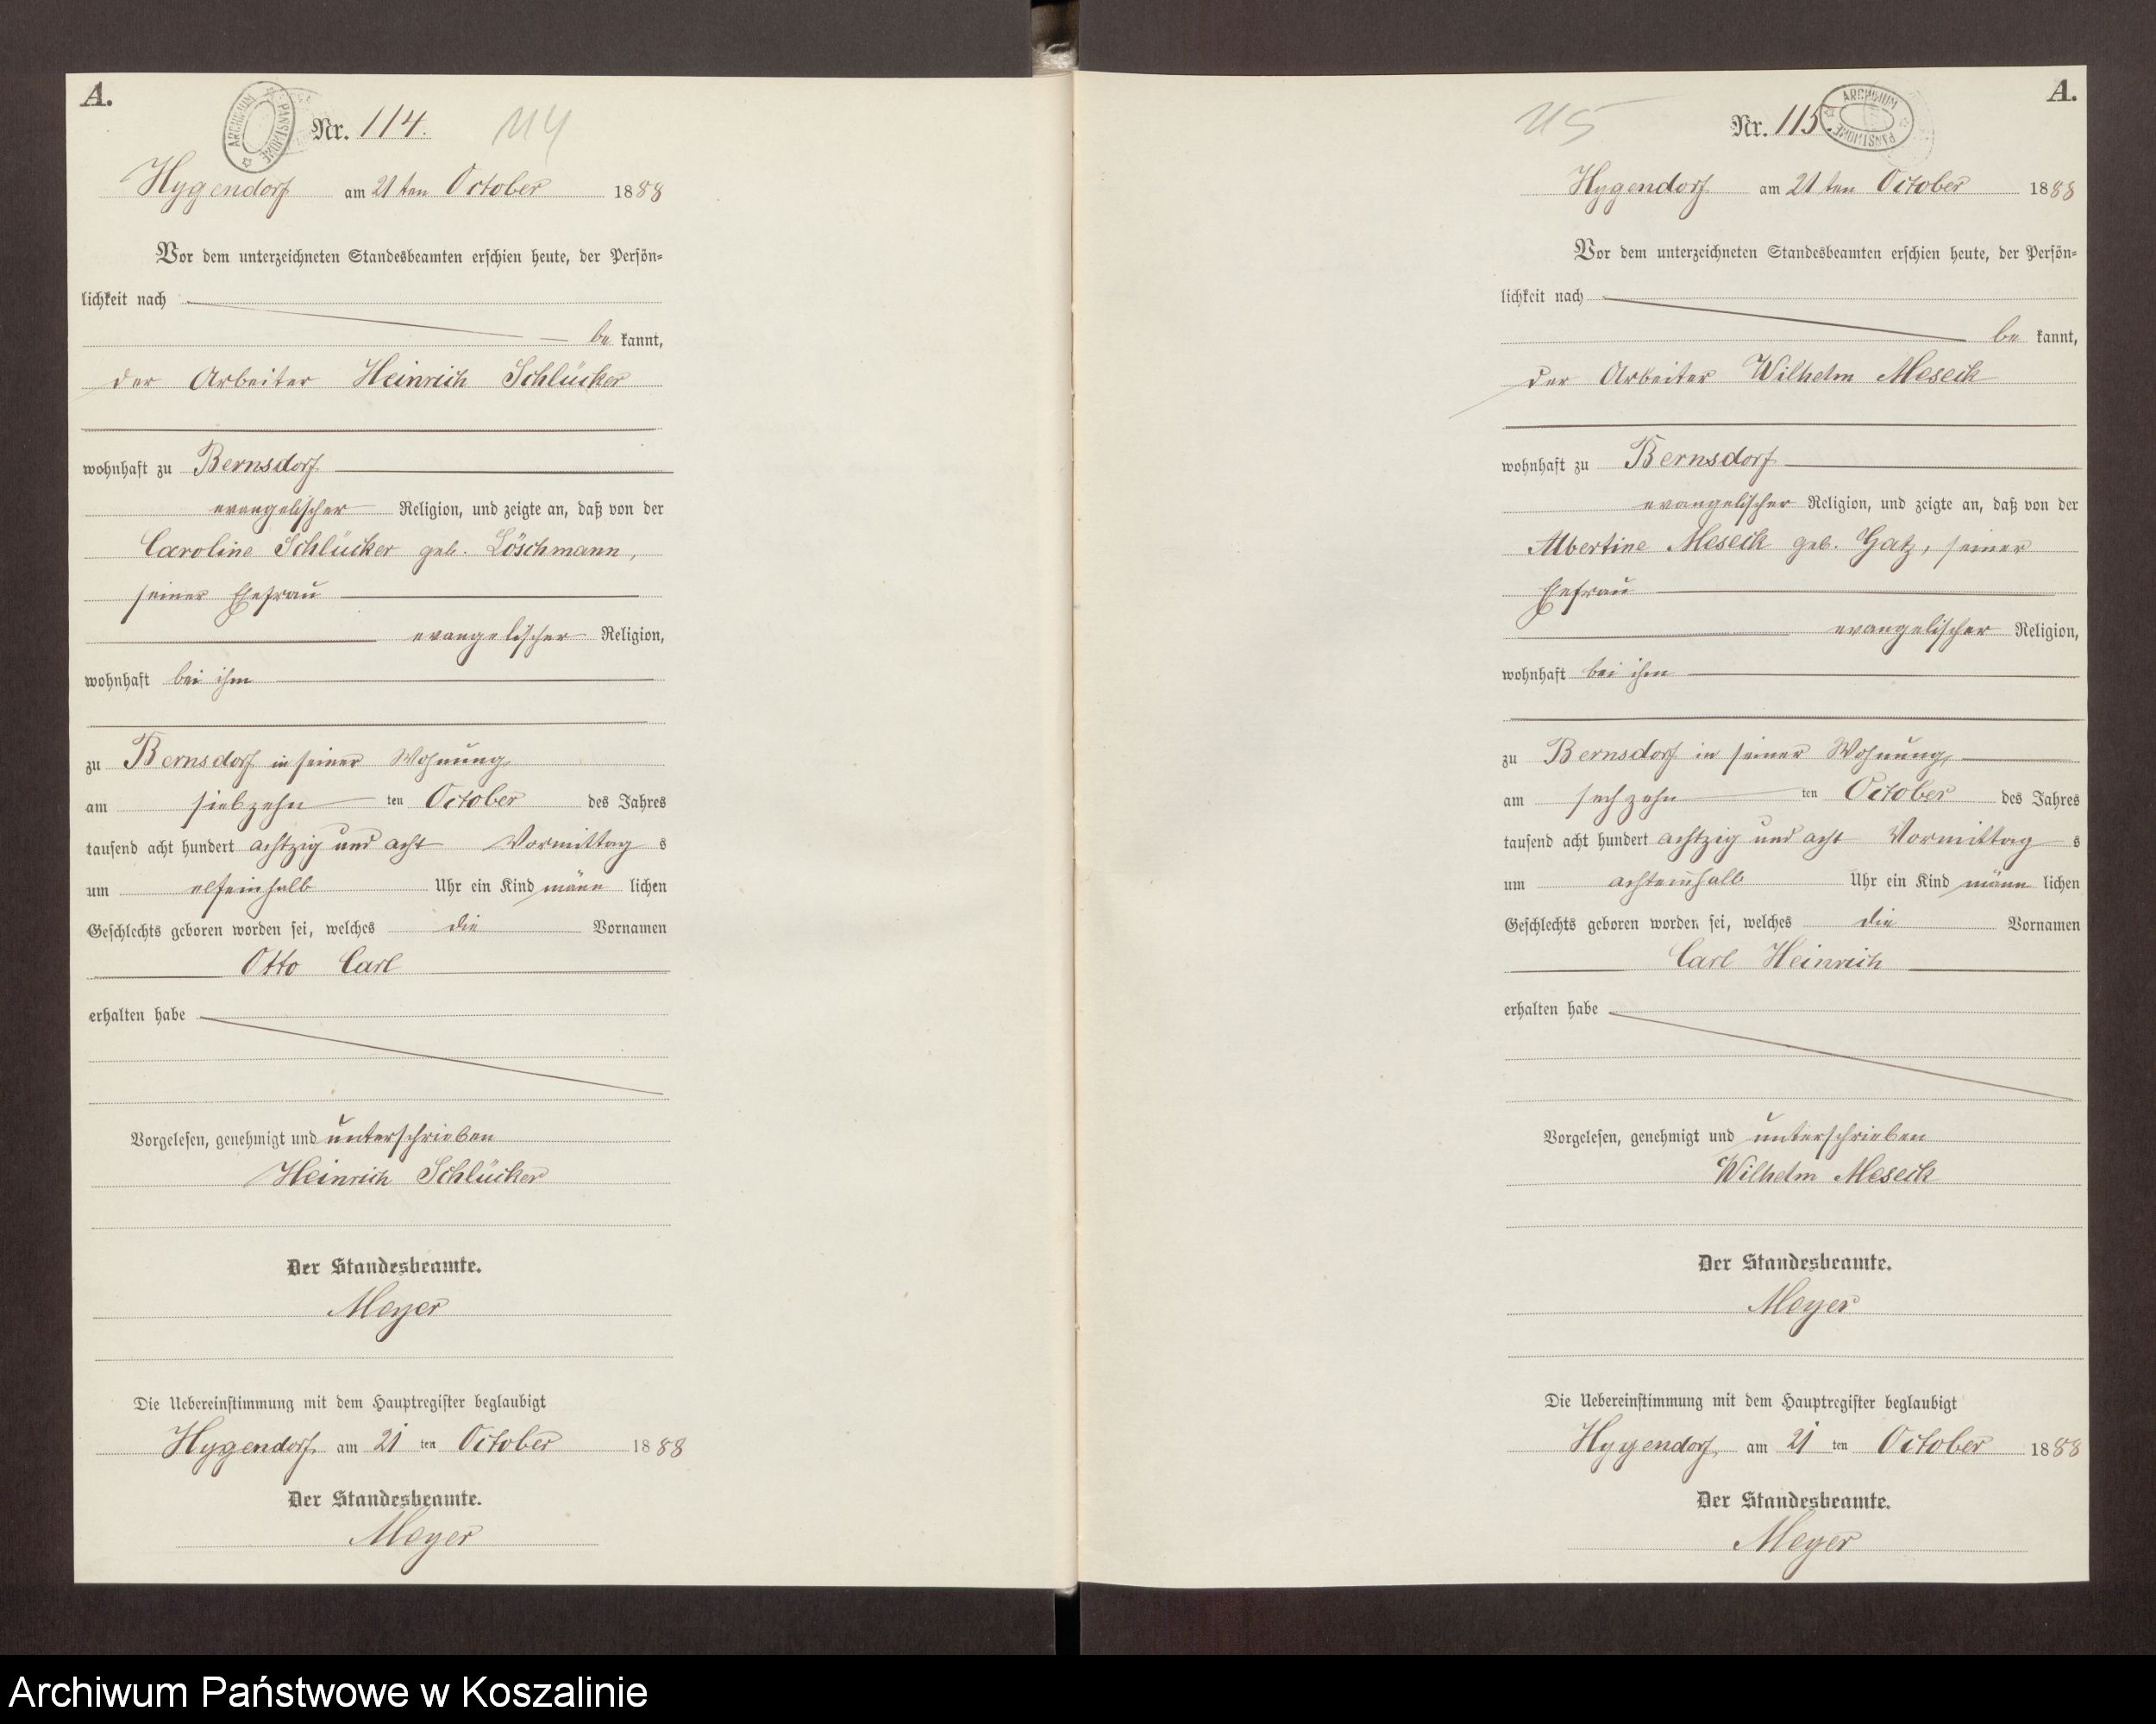 A.
ARCHIWUM PAŃSTWOWE
Nr. 114.
114
Hygendorf am 21ten October 1888
Vor dem unterzeichneten Standesbeamten erschien heute, der Persön-
lichkeit nach
be kannt,
der Arbeiter Heinrich Schlücker
wohnhaft zu Bernsdorf
evangelischer Religion, und zeigte an, daß von der
Caroline Schlücker geb. Löschmann,
seiner Ehefrau
evangelischer Religion,
wohnhaft bei ihm
zu Bernsdorf in seiner Wohnung,
am siebzehn ten October des Jahres
tausend acht hundert achtzig und acht Vormittag s
um elfeinhalb Uhr ein Kind männ lichen
Geschlechts geboren worden sei, welches die Vornamen
Otto Carl
erhalten habe
Vorgelesen, genehmigt und unterschrieben
Heinrich Schlücker
Der Standesbeamte.
Meyer
Die Uebereinstimmung mit dem Hauptregister beglaubigt
Hygendorf, am 21 ten October 1888
Der Standesbeamte.
Meyer
A.
115
Nr. 115.
ARCHIWUM PAŃSTWOWE
Hygendorf am 21 ten October 1888
Vor dem unterzeichneten Standesbeamten erschien heute, der Persön-
lichkeit nach
be kannt,
der Arbeiter Wilhelm Meseck
wohnhaft zu Bernsdorf
evangelischer Religion, und zeigte an, daß von der
Albertine Meseck geb. Gatz, seiner
Ehefrau
evangelischer Religion,
wohnhaft bei ihm
zu Bernsdorf in seiner Wohnung,
am sechzehn ten October des Jahres
tausend acht hundert achtzig und acht Vormittag s
um achteinhalb Uhr ein Kind männ lichen
Geschlechts geboren worden sei, welches die Vornamen
Carl Heinrich
erhalten habe
Vorgelesen, genehmigt und unterschrieben
Wilhelm Meseck
Der Standesbeamte.
Meyer
Die Uebereinstimmung mit dem Hauptregister beglaubigt
Hygendorf, am 21 ten October 1888
Der Standesbeamte.
Meyer
Archiwum Państwowe w Koszalinie